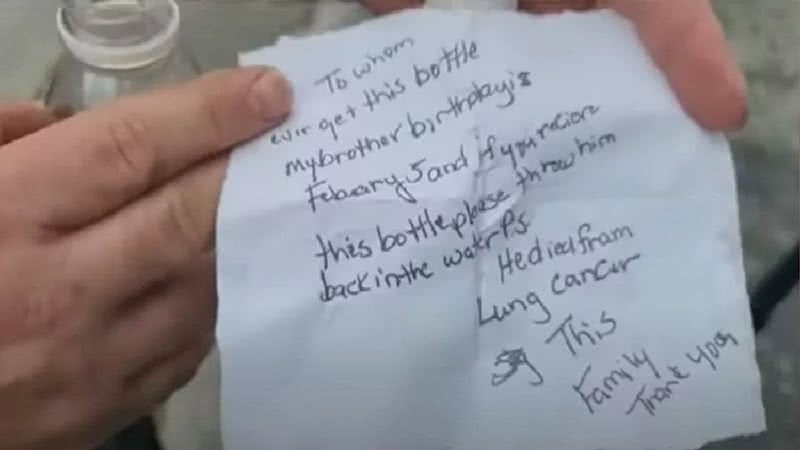 To whom
ever get this bottle
my brother birthday is
Febuary 5 and if you recieve
this bottle please throw him
back in the water Ps
He died fram
Lung cancer
This
Family
Thank you